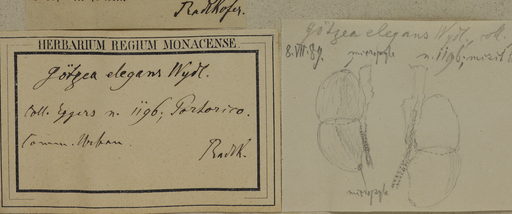 Radlkofer.
HERBARIUM REGIUM MONACENSE.
Götzea elegans Wydl.
Coll. Eggers n. 1196; Portorico.
Comm. Urban.
Radlk.
Götzea elegans Wydl., coll.
8.VII.89. micropyle n. 1196;
micropyle